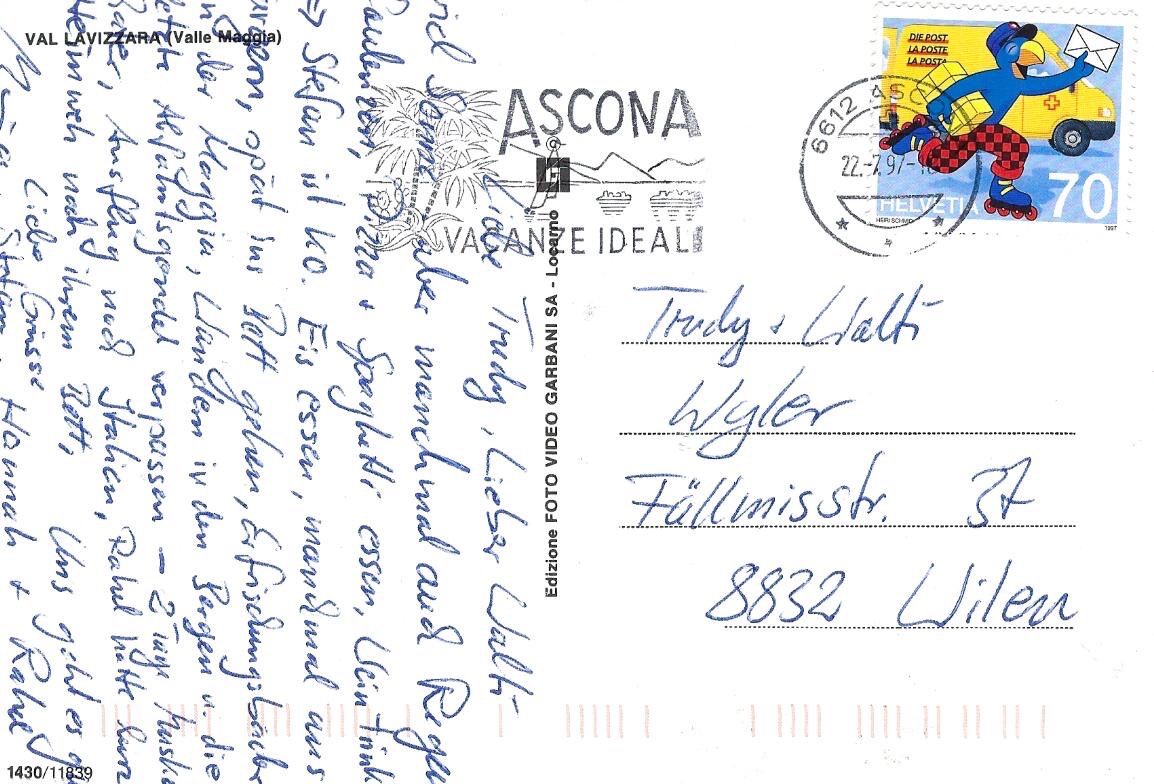 VAL LAVIZZARA (Valle Maggia)
ASCONA
VACANZE IDEALI
6612 ASC
22.-7.97-
DIE POST
LA POSTE
LA POSTA
HELVETIA
70
HEIRI SCHMID
1997
Liebe Trudy, Lieber Walti
viel Sonne, aber manchmal auch Regen
faulenzen, Pizza + Spaghetti essen, Wein trink
=> Stefan ist ko. Eis essen, manchmal uns
spät ins Bett gehen, Erfrischungsbäder
in der Maggia, Wandern in den Bergen u. die
letzte Abfahrtsgondel verpassen – 2 Tage Muske
Ausflug nach Italien, Rahel hatte kurz
Heimweh nach ihrem Bett,
Uns geht es g
Liebe Grüsse
Stefan, Hannah + Rahel
Edizione FOTO VIDEO GARBANI SA - Locarno
Trudy + Walti
Wyler
Fällmisstr. 37
8832 Wilen
1430/11839